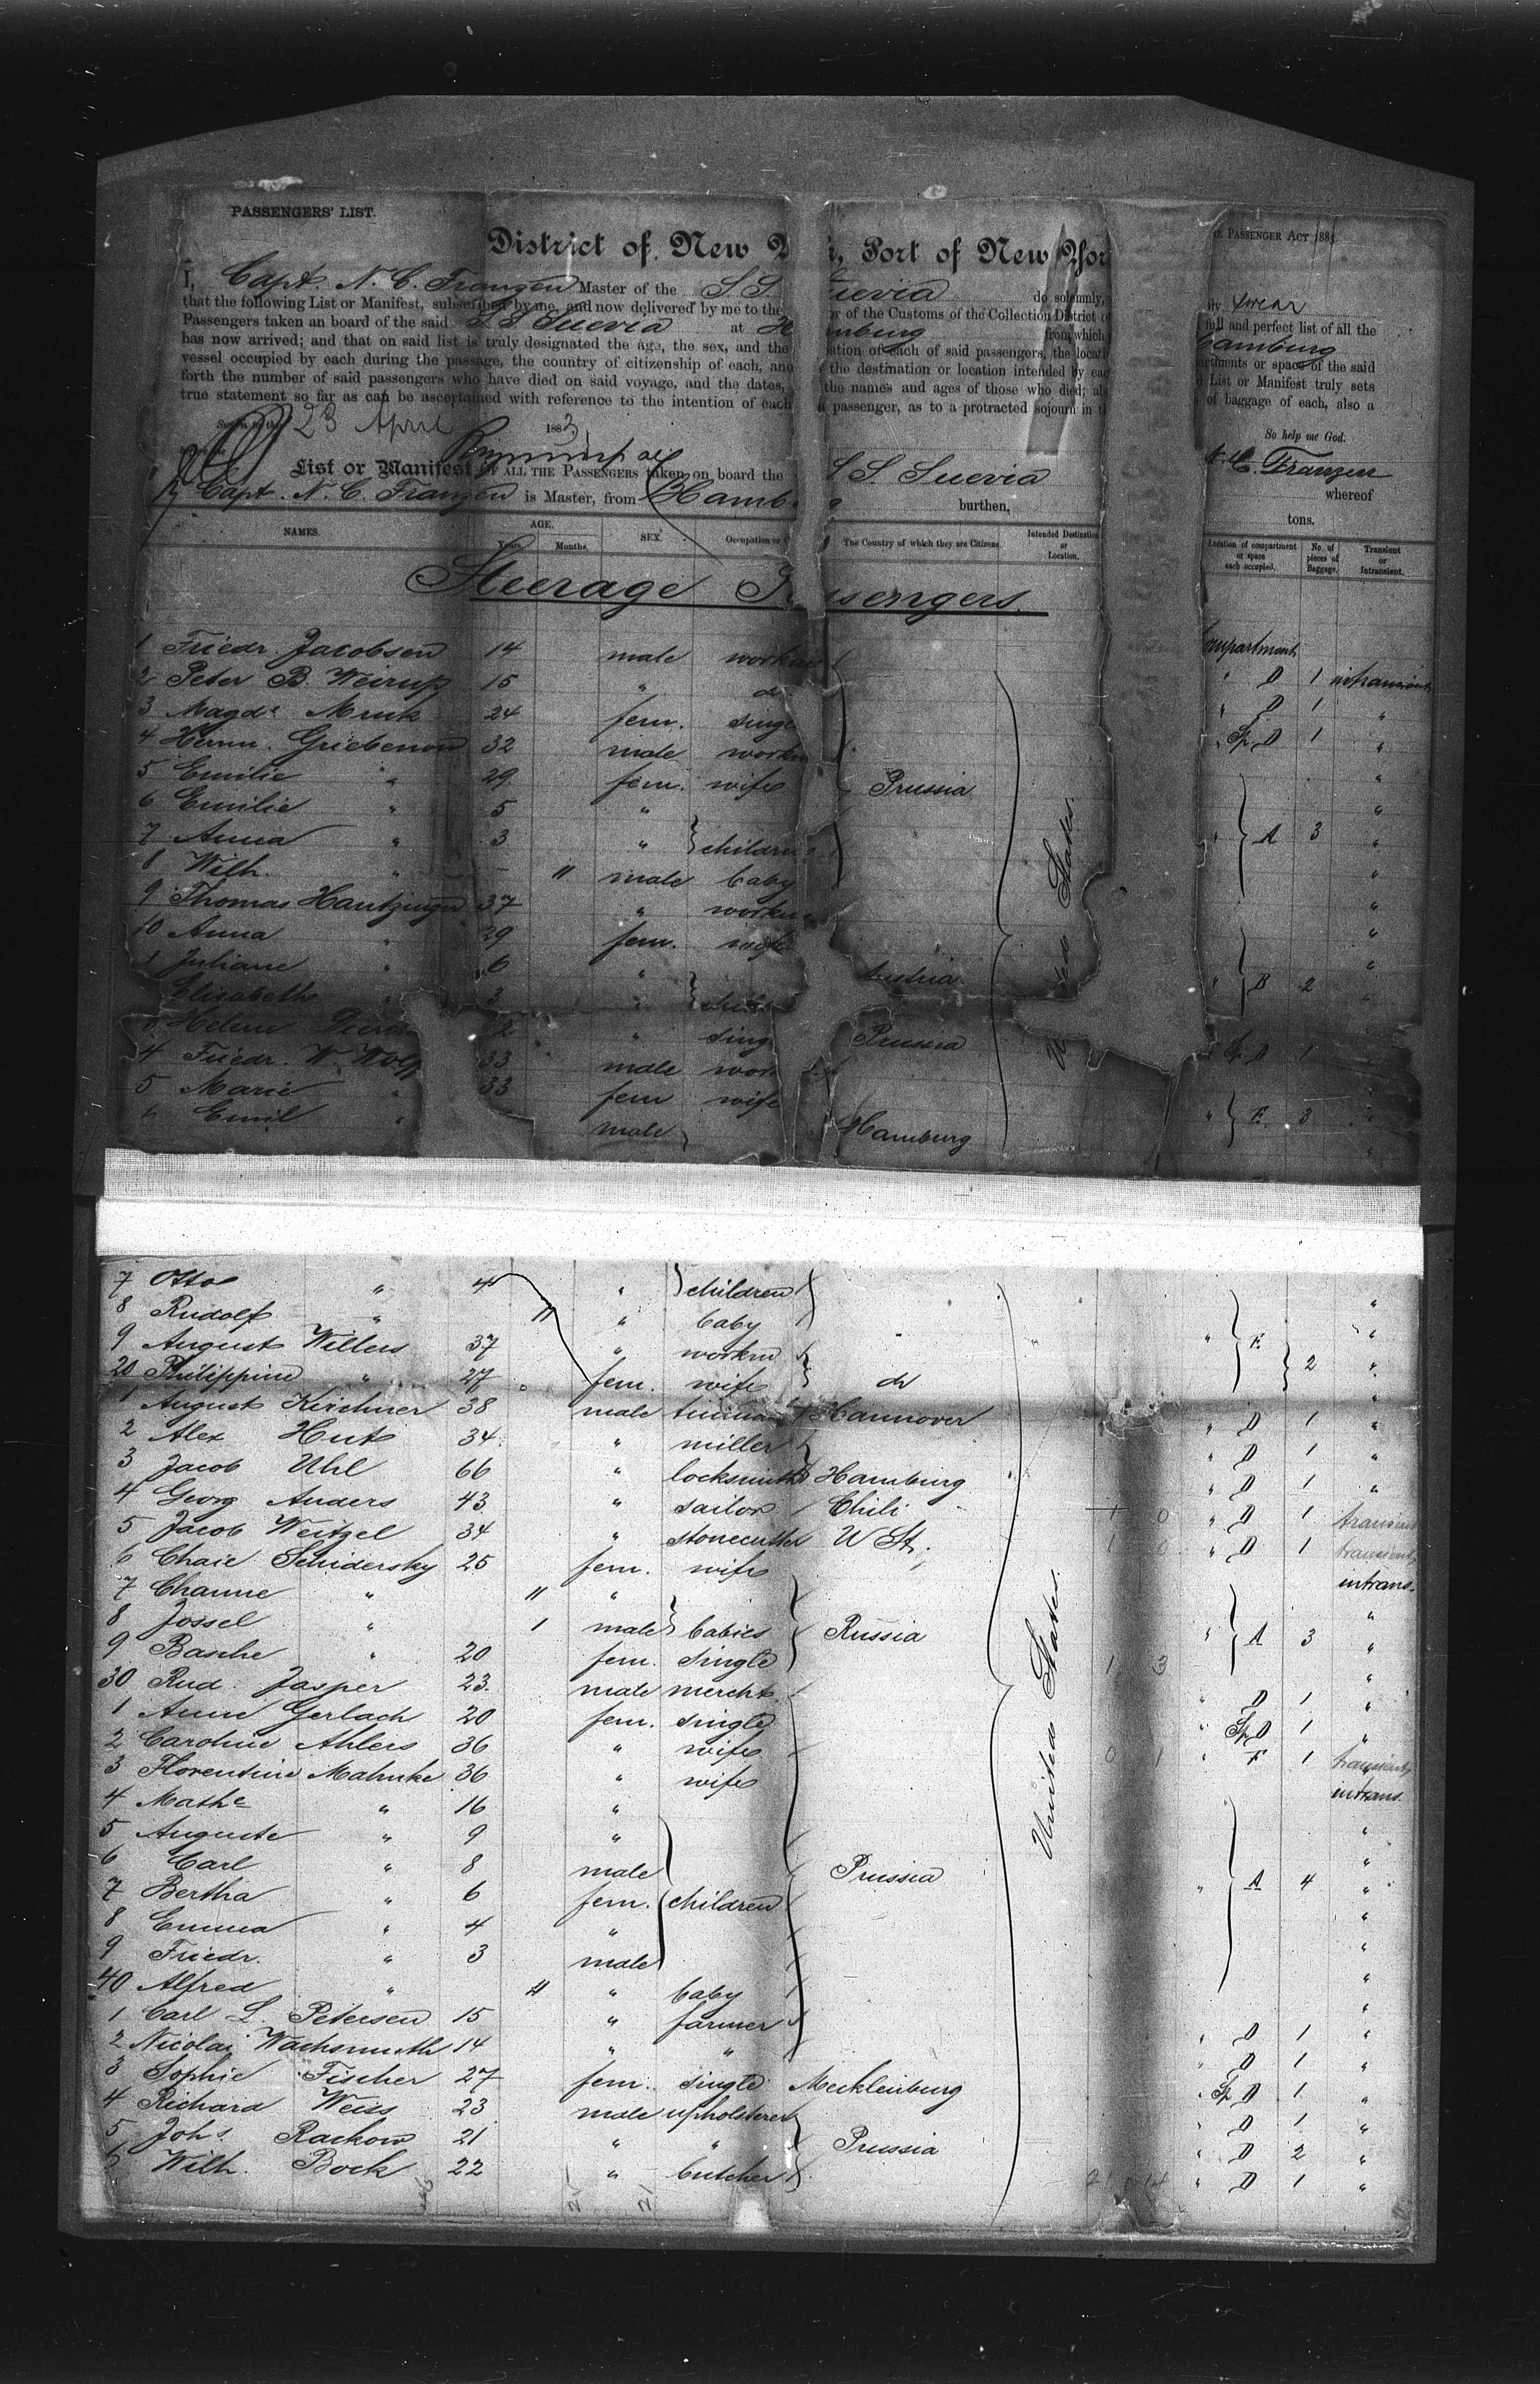 PASSENGERS' LIST.
THE PASSENGER ACT 188
District of New Y, Port of New York
I, Capt. N. C. Franzen Master of the S. S. Suevia do solemnly, swear
that the following List or Manifest, subscribed by me, and now delivered by me to the or of the Customs of the Collection District full and perfect list of all the
Passengers taken on board of the said S S Suevia at Hamburg from which
has now arrived; and that on said list is truly designated the age, the sex, and the ation of each of said passengers, the locat artments or space of the said
vessel occupied by each during the passage, the country of citizenship of each, and the destination or location intended by each List or Manifest truly sets
forth the number of said passengers who have died on said voyage, and the dates, the names and ages of those who died; als of baggage of each, also a
true statement so far as can be ascertained with reference to the intention of each passenger, as to a protracted sojourn in t
So help me God.
Sworn to this 23 April 1883
N. C. Franzen
List or Manifest OF ALL THE PASSENGERS taken on board the S S Suevia whereof
Capt. N. C. Franzen is Master, from Hamburg burthen, tons.
NAMES. AGE. Years. Months. SEX. Occupation or The Country of which they are Citizens. Intended Destination or Location. Location of compartment or space each occupied. No. of pieces of Baggage. Transient or Intransient.
Steerage Passengers.
Compartment
1 Friedr. Jacobsen 14 male workm D 1 intransient
2 Peter B. Weirup 15 " do " D 1 "
3 Magde Mruk 24 fem. single " Sp. D 1 "
4 Herm. Griebenow 32 male workm "
5 Emilie " 29 fem. wife Prussia "
6 Emilie " 5 " "
7 Anna " 3 " children " A 3 "
8 Wilh. " - 11 male baby "
9 Thomas Hantzinger 37 " workm "
10 Anna " 29 fem. wife "
1 Juliane " 6 " Austria " B 2 "
Elisabeth " 3 " "
3 Helene " sing Prussia " Sp. D 1
4 Friedr. W. Wolf 33 male work
5 Marie " 33 fem wife " E. 3 "
6 Emil " male Hamburg "
United States.
7 Otto " 4 " children "
8 Rudolf " 11 " baby "
9 August Willers 37 " workm " E. 2 "
20 Philippine " 27 fem. wife do "
1 August Kirchner 38 male Hannover " D 1 "
2 Alex Hut 34 " miller " D 1 "
3 Jacob Uhl 66 " locksmith Hamburg " D 1 "
4 Georg Anders 43 " sailor Chili 1 0 " D 1 transient
5 Jacob Weitzel 34 " stonecutter U St. 1 0 " D 1 transient
6 Chaie Schidersky 25 fem. wife intrans.
7 Channe " 11 " "
8 Jossel " 1 male babies Russia " A 3 "
9 Basche " 20 fem. single 1 3 "
30 Rud. Jasper 23 male mercht. " D 1 "
1 Anne Gerlach 20 fem. single " Sp D 1 "
2 Caroline Ahlers 36 " wife 0 1 " F 1 transient
3 Florentine Mahnke 36 " wife intrans.
4 Mathe " 16 " "
5 Auguste " 9 " "
6 Carl " 8 male Prussia "
7 Bertha " 6 fem. children " A 4 "
8 Emma " 4 " "
9 Friedr. " 3 male "
40 Alfred " 11 " baby "
1 Carl L. Petersen 15 " farmer " D 1 "
2 Nicolai Wachsmuth 14 " " " D 1 "
3 Sophie Fischer 27 fem. single Mecklenburg " Sp D 1 "
4 Richard Weiss 23 male upholsterer " D 1 "
5 Johs. Rackow 21 " " Prussia " D 2 "
6 Wilh. Bock 22 " butcher " D 1 "
United States.